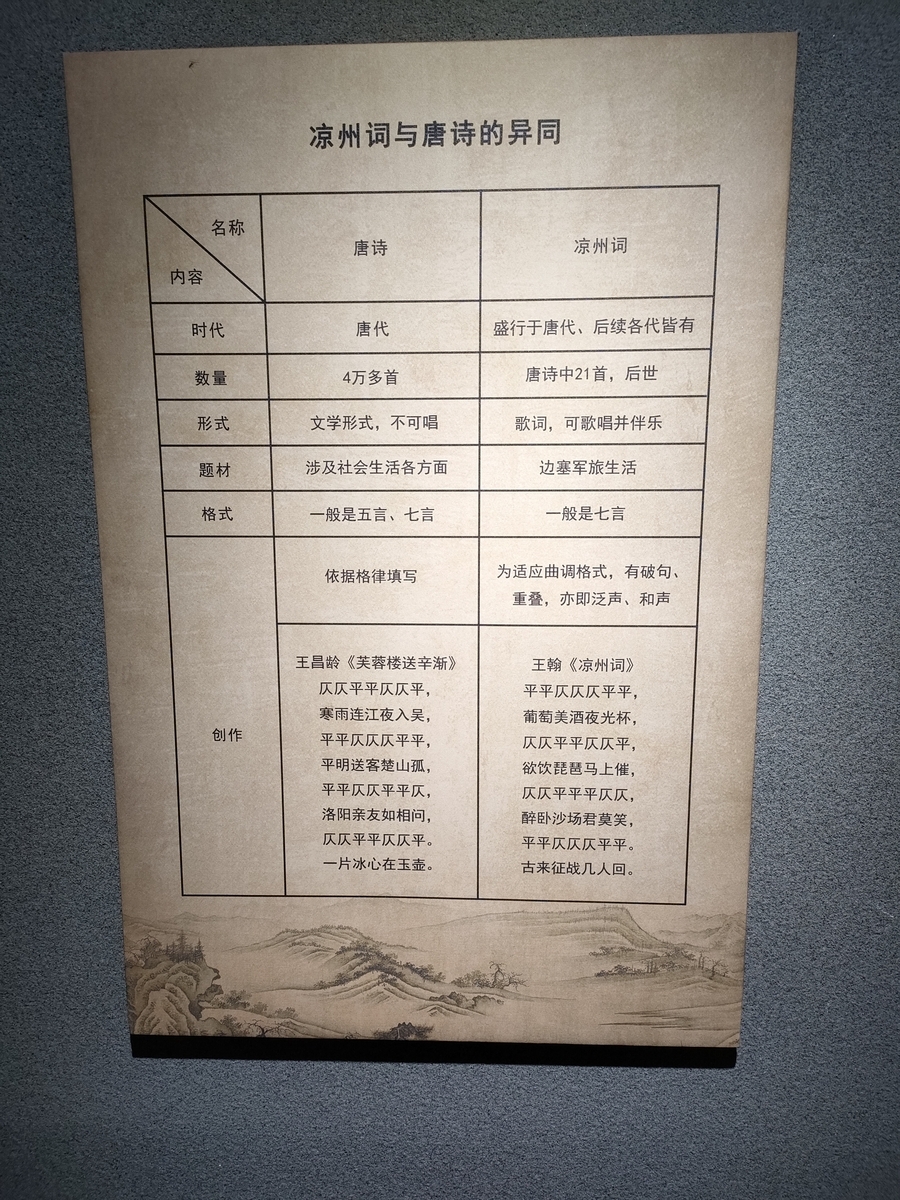 凉州词与唐诗的异同
名称
内容
唐诗
凉州词
时代
唐代
盛行于唐代、后续各代皆有
数量
4万多首
唐诗中21首，后世
形式
文学形式，不可唱
歌词，可歌唱并伴乐
题材
涉及社会生活各方面
边塞军旅生活
格式
一般是五言、七言
一般是七言
创作
依据格律填写
为适应曲调格式，有破句、
重叠，亦即泛声、和声
王昌龄《芙蓉楼送辛渐》
仄仄平平仄仄平，
寒雨连江夜入吴，
平平仄仄仄平平，
平明送客楚山孤，
平平仄仄平平仄，
洛阳亲友如相问，
仄仄平平仄仄平。
一片冰心在玉壶。
王翰《凉州词》
平平仄仄仄平平，
葡萄美酒夜光杯，
仄仄平平仄仄平，
欲饮琵琶马上催，
仄仄平平平仄仄，
醉卧沙场君莫笑，
平平仄仄仄平平。
古来征战几人回。